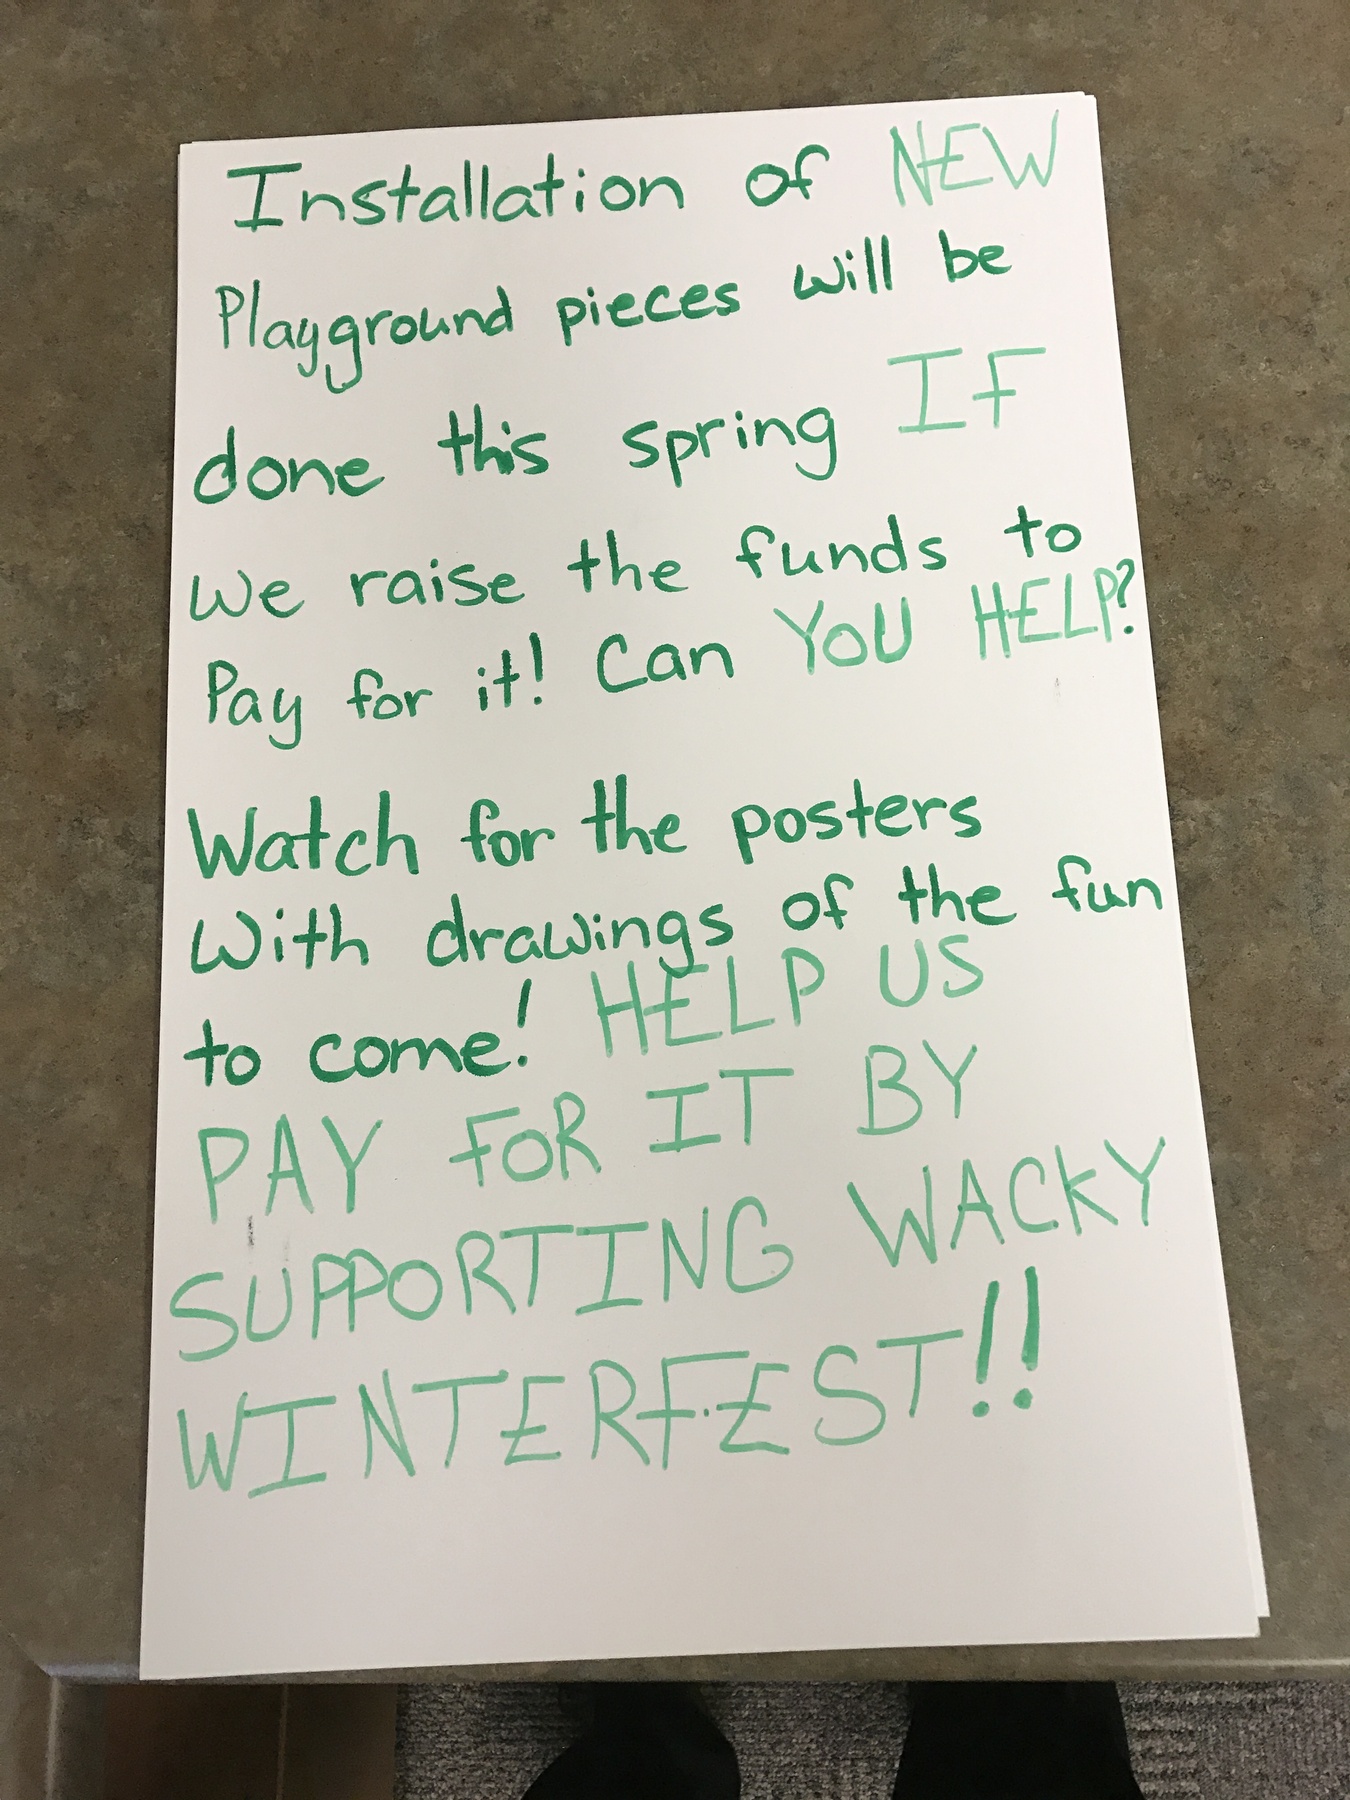 Installation of NEW
Playground pieces will be
done this spring IF
we raise the funds to
Pay for it! Can YOU HELP?
Watch for the posters
With drawings of the fun
to come! HELP US
PAY FOR IT BY
SUPPORTING WACKY
WINTERFEST!!